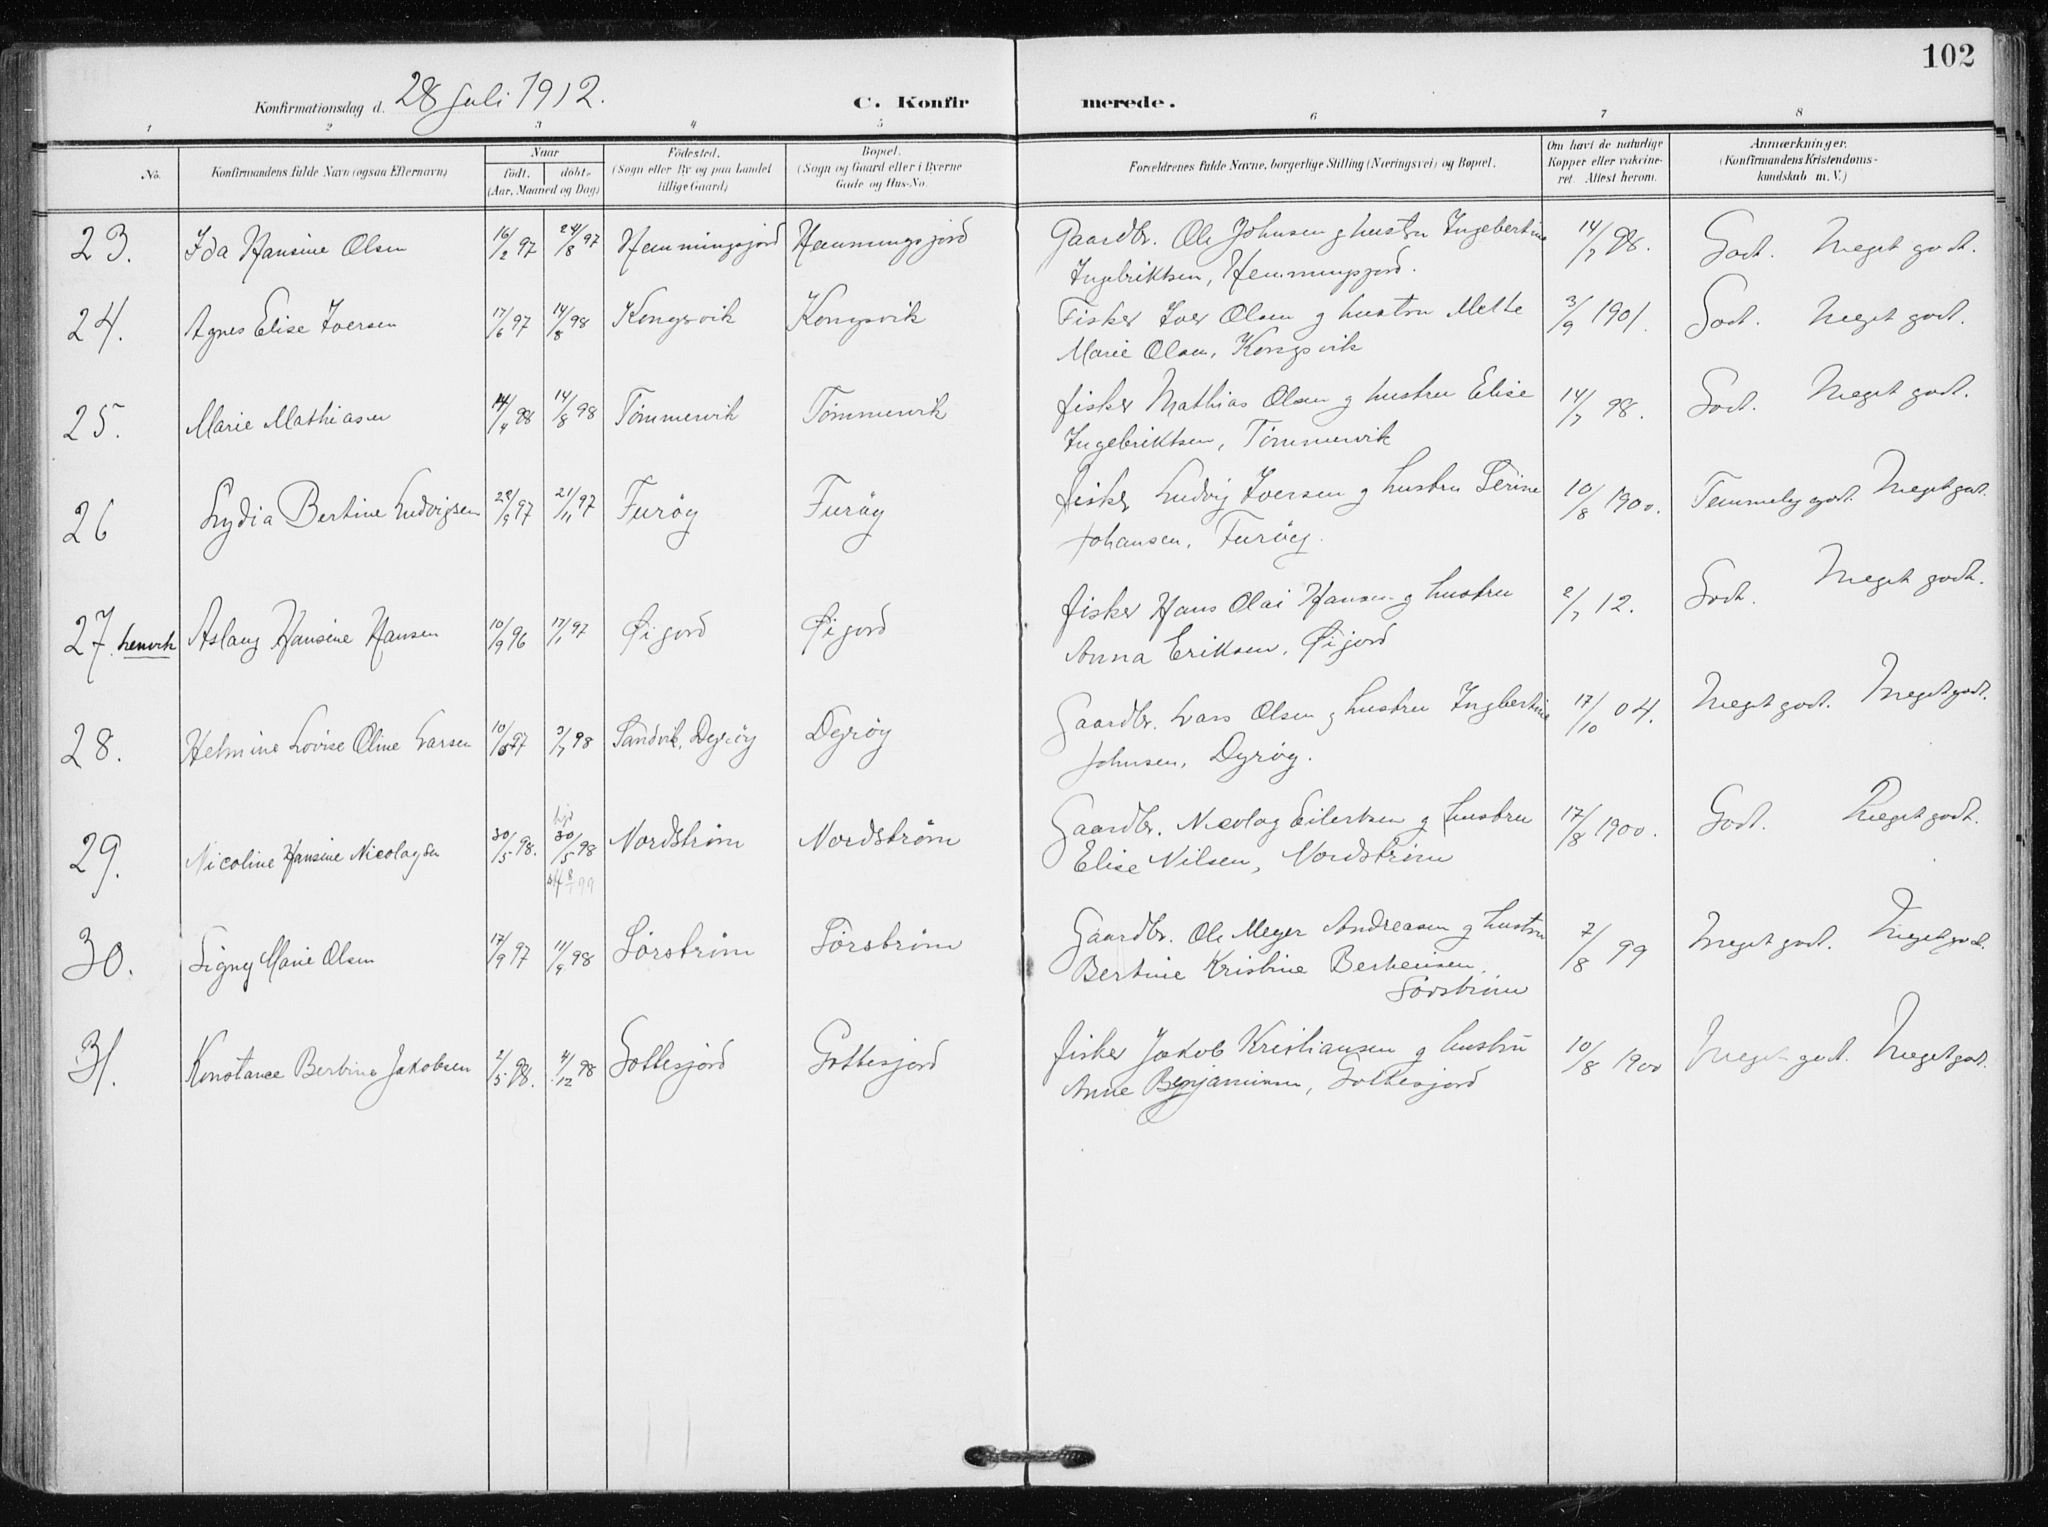 102
Konfirmationsdag d. 28 juli 1912.
C. Konfirmerede.
1 2 3 4 5 6 7 8
No.
Konfirmandens fulde Navn (ogsaa Efternavn)
Naar
födt. döbt.
(Aar, Maaned og Dag)
Födested.
(Sogn eller By og paa Landet
tillige Gaard)
Bopæl.
(Sogn og Gaard eller i Byerne
Gade og Hus-No.
Forældrenes fulde Navne, borgerlige Stilling (Næringsvei) og Bopæl.
Om havt de naturlige
Kopper eller vakcine-
ret. Attest herom.
Anmærkninger.
(Konfirmandens Kristendoms-
kundskab m. V.)
23. Ida Hansine Olsen 16/2 97 24/8 97 Hemmingsjord Hemmingsjord Gaardbr. Ole Johnsen g hustru Ingebertine 14/7 98. Godt. Meget godt.
Ingebriktsen, Hemmingsjord.
24. Agnes Elise Iversen 17/6 97 14/8 98 Kongsvik Kongsvik Fisker Iver Olsen g hustru Mette 3/9 1901. Godt. Meget godt.
Marie Olsen, Kongsvik
25. Marie Mathiasen 14/4 98 14/8 98 Tömmervik Tömmervik fisker Mathias Olsen g hustru Elise 14/7 98. Godt. Meget godt.
Ingebriktsen, Tömmervik
26 Lydia Bertine Ludvigsen 28/9 97 21/11 97 Furöy Furöy fisker Ludvig Iversen g hustru Serine 10/8 1900. Temmelig godt. Meget godt.
Johansen, Furöy.
27. henvik Aslaug Hansine Hansen 10/9 96 17/1 97 Øijord Øijord fisker Hans Olai Hansen g hustru 2/7 12. Godt. Meget godt.
Anna Eriksen, Øijord
28. Helmine Lovise Oline Larsen 10/ 97 3/7 98 Sandvik, Dyröy Dyröy Gaardbr. Lars Olsen g hustru Ingbertine 17/10 04. Meget godt. Meget godt.
Johnsen, Dyröy.
29. Nicoline Hansine Nicolaysen 30/5 98. hjd 30/5 98 Nordström Nordström Gaardbr. Nicolay Eilertsen g hustru 17/8 1900. Godt. Meget godt.
stf 8/1 99 Elise Nilsen, Nordström
30. Signy Marie Olsen 17/9 97 11/9 98 Sörström Sörström Gaardbr. Ole Meyer Andreasen g hustru 7/8 99 Meget godt. Meget godt.
Bertine Kristine Bertheusen,
Sörström
31. Konstance Bertine Jakobsen 2/5 98. 4/12 98 Gottesjord Gottesjord fisker Jakob Kristiansen g hustru 10/8 1900 Meget godt. Meget godt.
Anne Benjaminsen, Gottesjord